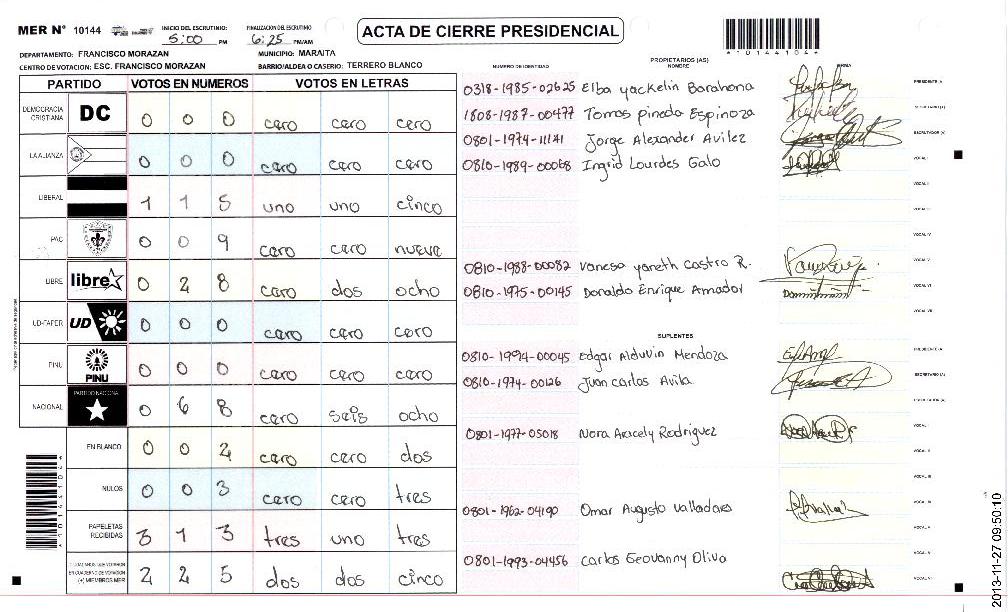 MER N° 10144
INICIO DEL ESCRUTINIO: 5:00 PM
FINALIZACION DEL ESCRUTINIO 6:25 PM/AM
ACTA DE CIERRE PRESIDENCIAL
*10144104*
DEPARTAMENTO: FRANCISCO MORAZAN
MUNICIPIO: MARAITA
CENTRO DE VOTACION: ESC. FRANCISCO MORAZAN
BARRIO/ALDEA O CASERIO: TERRERO BLANCO
PARTIDO VOTOS EN NUMEROS VOTOS EN LETRAS
DEMOCRACIA CRISTIANA DC 0 0 0 cero cero cero
LA ALIANZA 0 0 0 cero cero cero
LIBERAL 1 1 5 uno uno cinco
PAC 0 0 9 cero cero nueve
LIBRE libre 0 2 8 cero dos ocho
UD-FAPER UD 0 0 0 cero cero cero
PINU PINU 0 0 0 cero cero cero
NACIONAL PARTIDO NACIONAL 0 6 8 cero seis ocho
EN BLANCO 0 0 2 cero cero dos
NULOS 0 0 3 cero cero tres
PAPELETAS RECIBIDAS 3 1 3 tres uno tres
CIUDADANOS QUE VOTARON EN CUADERNO DE VOTACION (+) MIEMBROS MER 2 2 5 dos dos cinco
NUMERO DE IDENTIDAD
PROPIETARIOS (AS)
NOMBRE
FIRMA
0318-1985-02625 Elba yackelin Barahona PRESIDENTE (A)
1808-1987-00477 Tomas pineda Espinoza SECRETARIO (A)
0801-1974-11141 Jorge Alexander Avilez ESCRUTADOR (A)
0816-1989-00068 Ingrid Lourdes Galo VOCAL I
VOCAL II
VOCAL III
VOCAL IV
0810-1988-00082 Vanesa yaneth castro R. VOCAL V
0810-1975-00145 Donaldo Enrique Amador VOCAL VI
VOCAL VII
SUPLENTES
0810-1994-00045 Edgar Alduvin Mendoza PRESIDENTE (A)
0810-1974-00126 Juan carlos Avila SECRETARIO (A)
ESCRUTADOR (A)
0801-1977-05018 Nora Aracely Rodriguez VOCAL I
VOCAL II
VOCAL III
0801-1962-04190 Omar Augusto Valladares VOCAL IV
VOCAL V
0801-1993-04456 Carlos Geovanny Oliva
VOCAL VI
2013-11-27 09:50:10